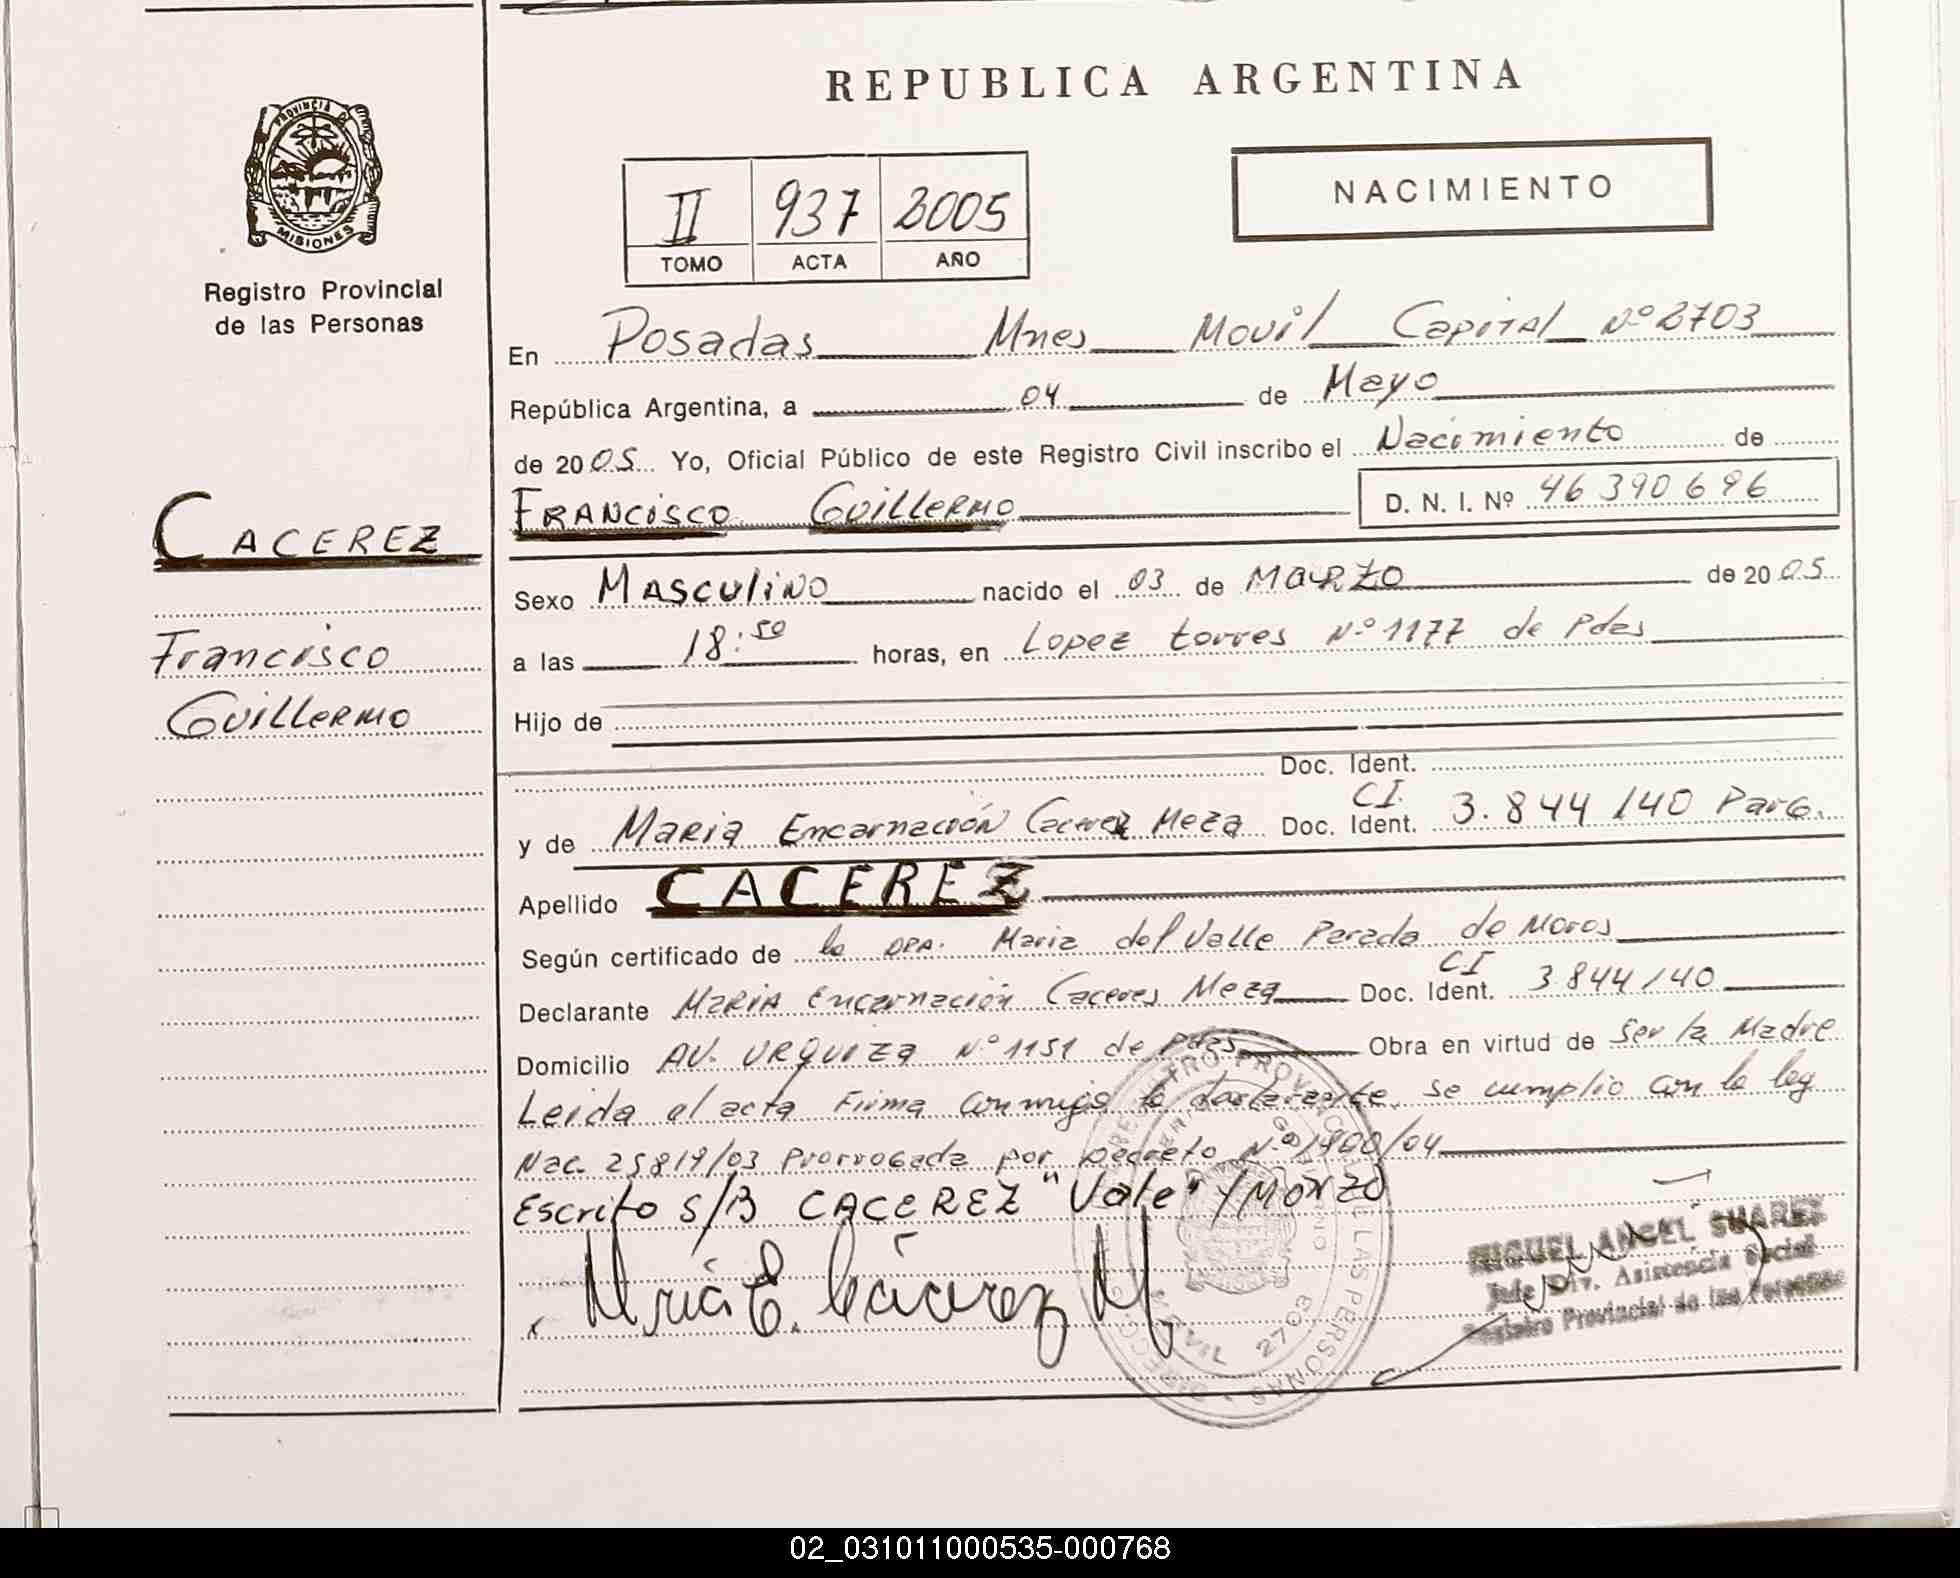 REPUBLICA ARGENTINA
PROVINCIA DE
MISIONES
Registro Provincial
de las Personas
II 937 2005
TOMO ACTA AÑO
NACIMIENTO
En Posadas Mnes Movil Capital Nº 2703
República Argentina, a 04 de Mayo
de 2005 Yo, Oficial Público de este Registro Civil inscribo el Nacimiento de
CACEREZ
Francisco
Guillermo
FRANCISCO GuillERMO D. N. I. Nº 46 390 696
Sexo MASCULINO nacido el 03 de MARZO de 2005
a las 18:50 horas, en Lopez torres Nº 1177 de Pdas
Hijo de
Doc. Ident.
y de MARIA Encarnación Cacerez Meza Doc. Ident. CI. 3.844140 Parg.
Apellido CACEREZ
Según certificado de la DRA. Maria del Valle Parada de Moros
Declarante MARIA Encarnación Caceres Meza Doc. Ident. CI 3844140
Domicilio AV. URQUIZA Nº 1151 de Pdas Obra en virtud de Ser la Madre
Leida el acta Firma conmigo la declarante. se cumplio con la ley
Nac. 25819/03 Prorrogada por Decreto Nº 1900/04
Escrito S/B CACEREZ "Vale" y MARZO
María E. Cácerez M
MIGUEL ANGEL SUAREZ
Jefe Div. Asistencia Social
Registro Provincial de las Personas
REGISTRO PROVINCIAL DE LAS PERSONAS
MOVIL 2703
02_031011000535-000768